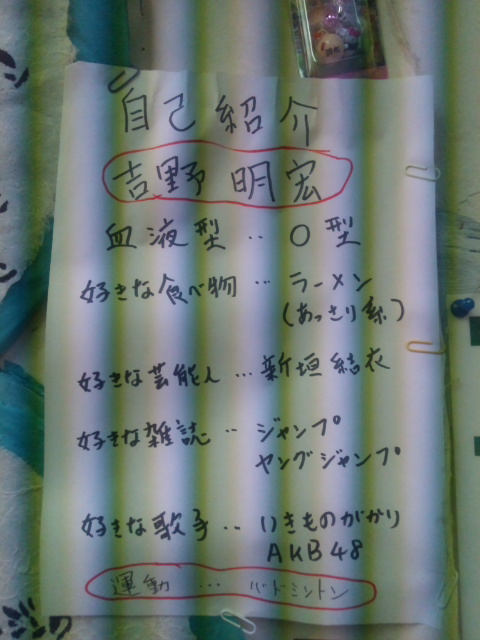 自己紹介
吉野 明宏
血液型‥O型
好きな食べ物…ラーメン
(あっさり系)
好きな芸能人…新垣結衣
好きな雑誌‥ジャンプ
ヤングジャンプ
好きな歌手‥いきものがかり
AKB48
運動…バドミントン